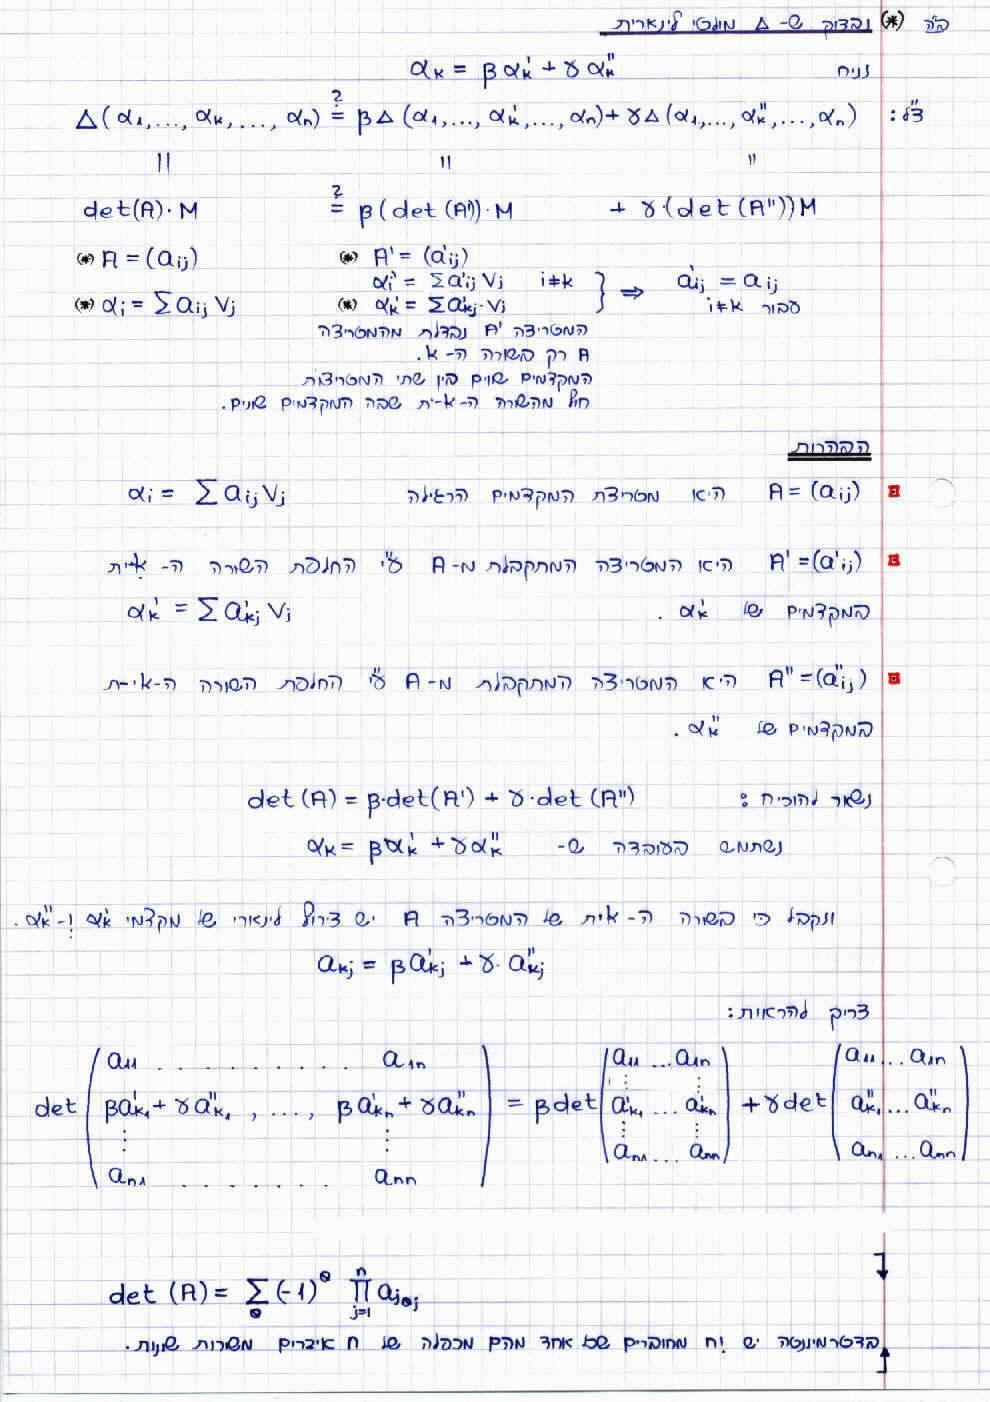 ב״ה (*) נבדוק ש- Δ מולטי לינארית
נניח αₖ = βαₖ' + γαₖ''
צ״ל: Δ(α₁,...,αₖ,...,αₙ) ≟ βΔ(α₁,...,αₖ',...,αₙ) + γΔ(α₁,...,αₖ'',...,αₙ)
|| || ||
det(A)·M ≟ β(det(A'))·M + γ·(det(A''))M
(*) A = (aᵢⱼ) (*) A' = (a'ᵢⱼ)
αᵢ' = Σa'ᵢⱼVⱼ i≠k } ⇒ a'ᵢⱼ = aᵢⱼ
(*) αᵢ = ΣaᵢⱼVⱼ (*) αₖ' = Σa'ₖⱼ·Vⱼ עבור i≠k
המטריצה A' נבדלת מהמטריצה
A רק בשורה ה- k.
המקדמים שווים בין שתי המטריצות
חוץ מהשורה ה-k-ית שבה המקדמים שונים.
הבהרות
A = (aᵢⱼ) היא מטריצת המקדמים הרגילה αᵢ = ΣaᵢⱼVⱼ
A' = (a'ᵢⱼ) היא המטריצה המתקבלת מ-A ע״י החלפת השורה ה- k-ית
במקדמים של αₖ'. αₖ' = Σa'ₖⱼVⱼ
A'' = (a''ᵢⱼ) היא המטריצה המתקבלת מ-A ע״י החלפת השורה ה-k-ית
במקדמים של αₖ''.
נשאר להוכיח: det(A) = β·det(A') + γ·det(A'')
נשתמש בעובדה ש- αₖ = βαₖ' + γαₖ''
ונקבל כי בשורה ה-k-ית של המטריצה A יש צירוף לינארי של מקדמי αₖ' ו-αₖ''.
aₖⱼ = βa'ₖⱼ + γ·a''ₖⱼ
צריך להראות:
a₁₁ . . . . . . . . . a₁ₙ a₁₁ ... a₁ₙ a₁₁ ... a₁ₙ
det βa'ₖ₁ + γa''ₖ₁ , ... , βa'ₖₙ + γa''ₖₙ = βdet a'ₖ₁ ... a'ₖₙ + γdet a''ₖ₁ ... a''ₖₙ
aₙ₁ . . . . . . . aₙₙ aₙ₁ ... aₙₙ aₙ₁ ... aₙₙ
det(A) = Σ (-1)^σ ∏ⱼ₌₁ⁿ aⱼσⱼ
בדטרמיננטה יש n! מחוברים שכל אחד מהם מכפלה של n איברים משורות שונות.